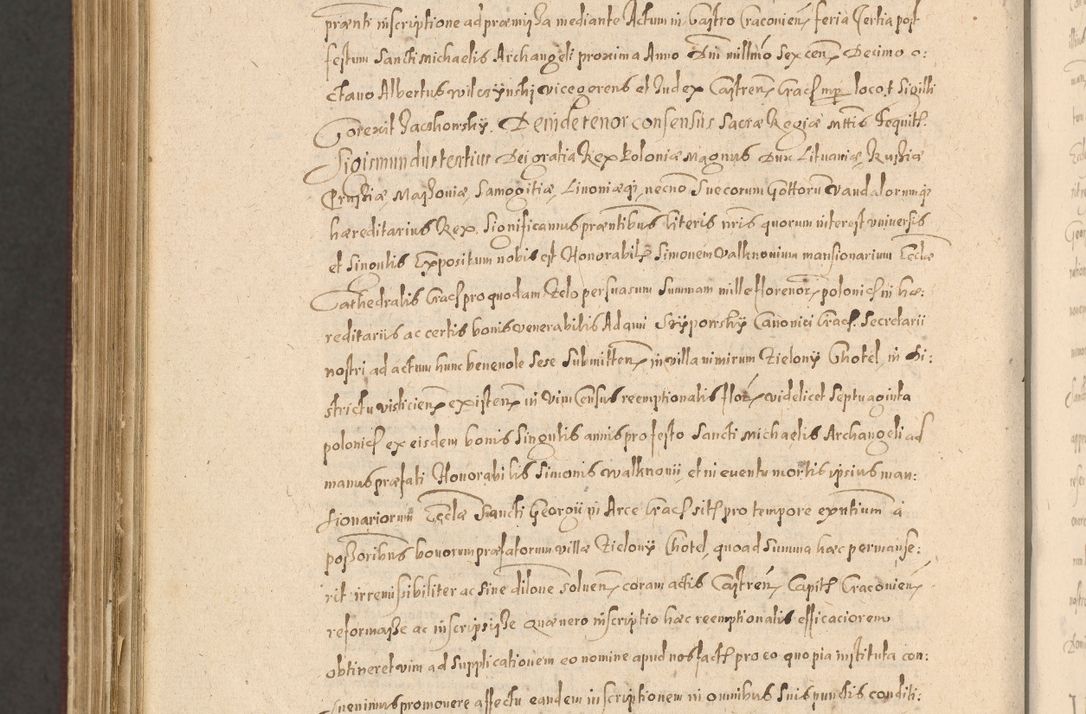 præsnti inscriptione ad præmissa mediante Actum in Castro Cracovien feria Tertia post
festum Sancti Michaelis Archangeli proxima Anno Dni millmo Sexcen Decimo o:
ctavo Albertus Wilczynski Vicegerens et Iudex Castren Crac mp loco t Sigilli
Corexit Jaschowsky. De inde tenor consensus Sacræ Regiæ Mttis sequit.
Sigismundus tertius Dei gratia Rex Poloniæ Magnus Dux Lituaniæ, Russiæ
Prussiæ Massoviæ, Samogitiæ, Livoniæq, necno Suecorum Gottoru Vandalorumq
hæreditarius Rex. Significamus præntibus literis nris quorum interest universis
et Singulis Expositum nobis est Honorabile Simonem Walknovium mansionarium Ecclæ
Cathedralis Crac pro quodam Zelo persuasum Summam mille florenor polonic in hæ:
reditariis ac certis bonis venerabilis Adami Canonici Crac. Secretarii
nostri ad actum hunc benevole Sese Submitten in villa nimirum Zielony Chotel, in di:
strictu vislicien existen in Vim Census reemptionalis flor videlicet Septuaginta
polonic ex eisdem bonis Singulis annis pro festo Sancti Michaelis Archangeli ad
manus præfati Honorabilis Simonis Walknovii, et in eventu mortis ipsius man:
sionariorum Ecclæ Sancti Georgii in Arce Crac sit pro tempore exntium à
possoribus bonorum præfatorum villæ Zielony Chotel, quoad Summa hæc permanse:
rit irremissibiliter ac Sine dilone Solven coram actis Castren Capitl Cracovien
reformasse ac inscripsisse Quæ vero inscriptio hæc reemptionalis efficaciorem
obtineret vim ad Supplicationem eo nomine apud nos fact pro eo quo pia instituta con:
Suevimus promovere affectu eandem inscriptionem in omnibus Suis punctis conditi: